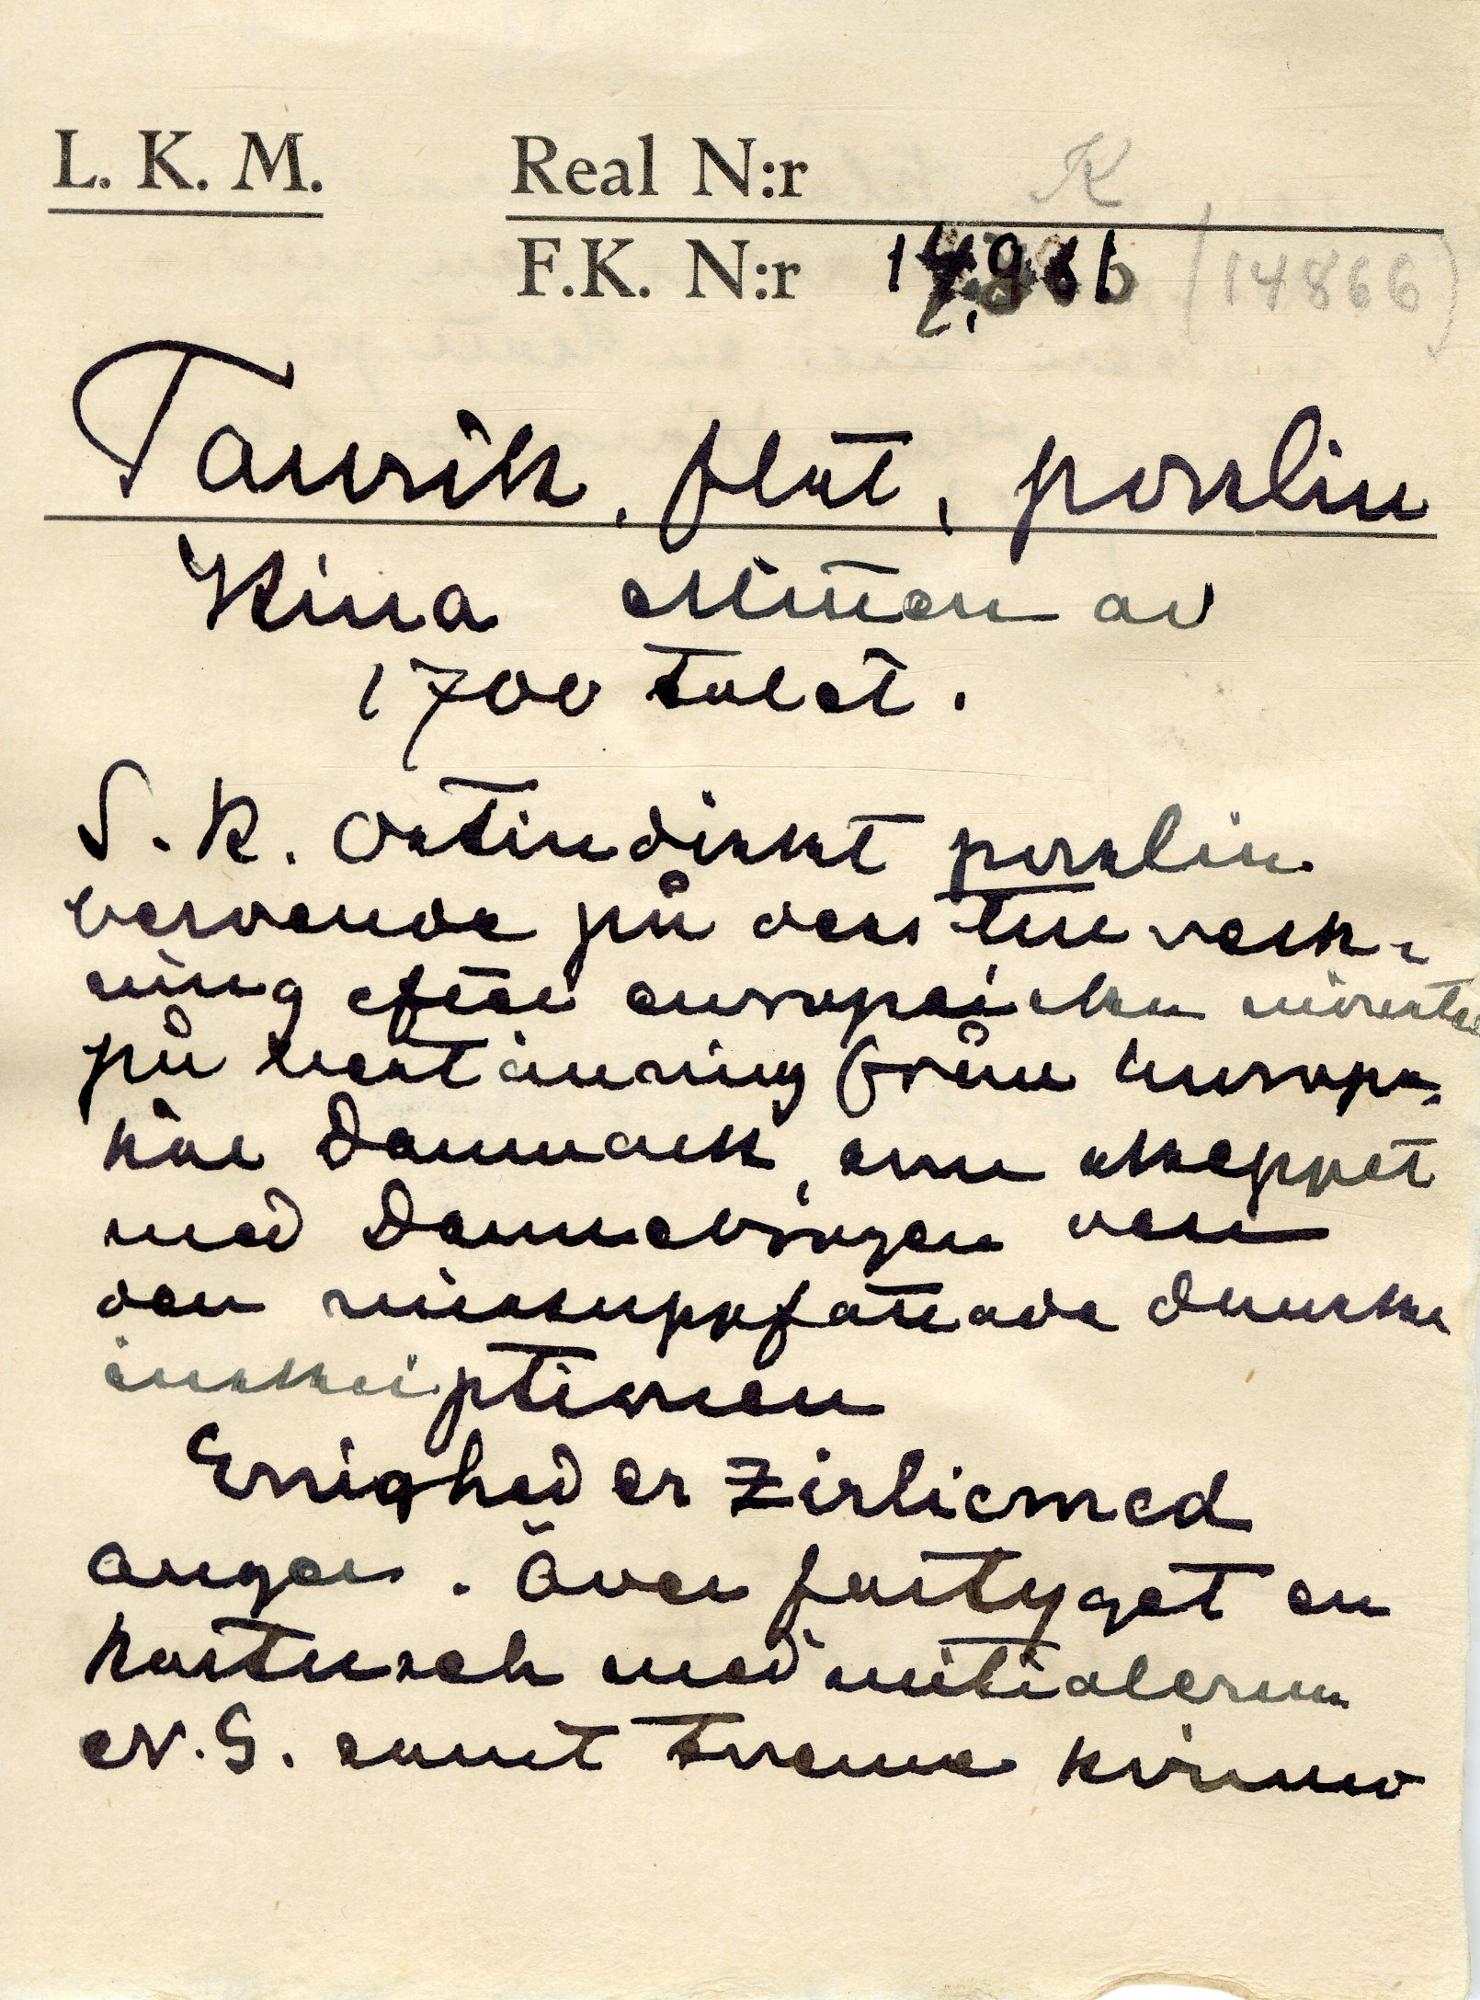 L. K. M. Real N:r K
F.K. N:r 14866 (14866)
Tallrik, flat, porslin
Kina Mitten av
1700 talet.
S. k. Ostindiskt porslin
beroende på dess tillverk-
ning efter europeiska mönster
på beställning från Europa,
här Danmark, som skeppet
med Dannebrogen och
den missuppfattade danska
inskriptionen
Enighed er Zirliemed
anger. Över fartyget en
kartusch med initialerna
N. S. samt tvenne kvinno